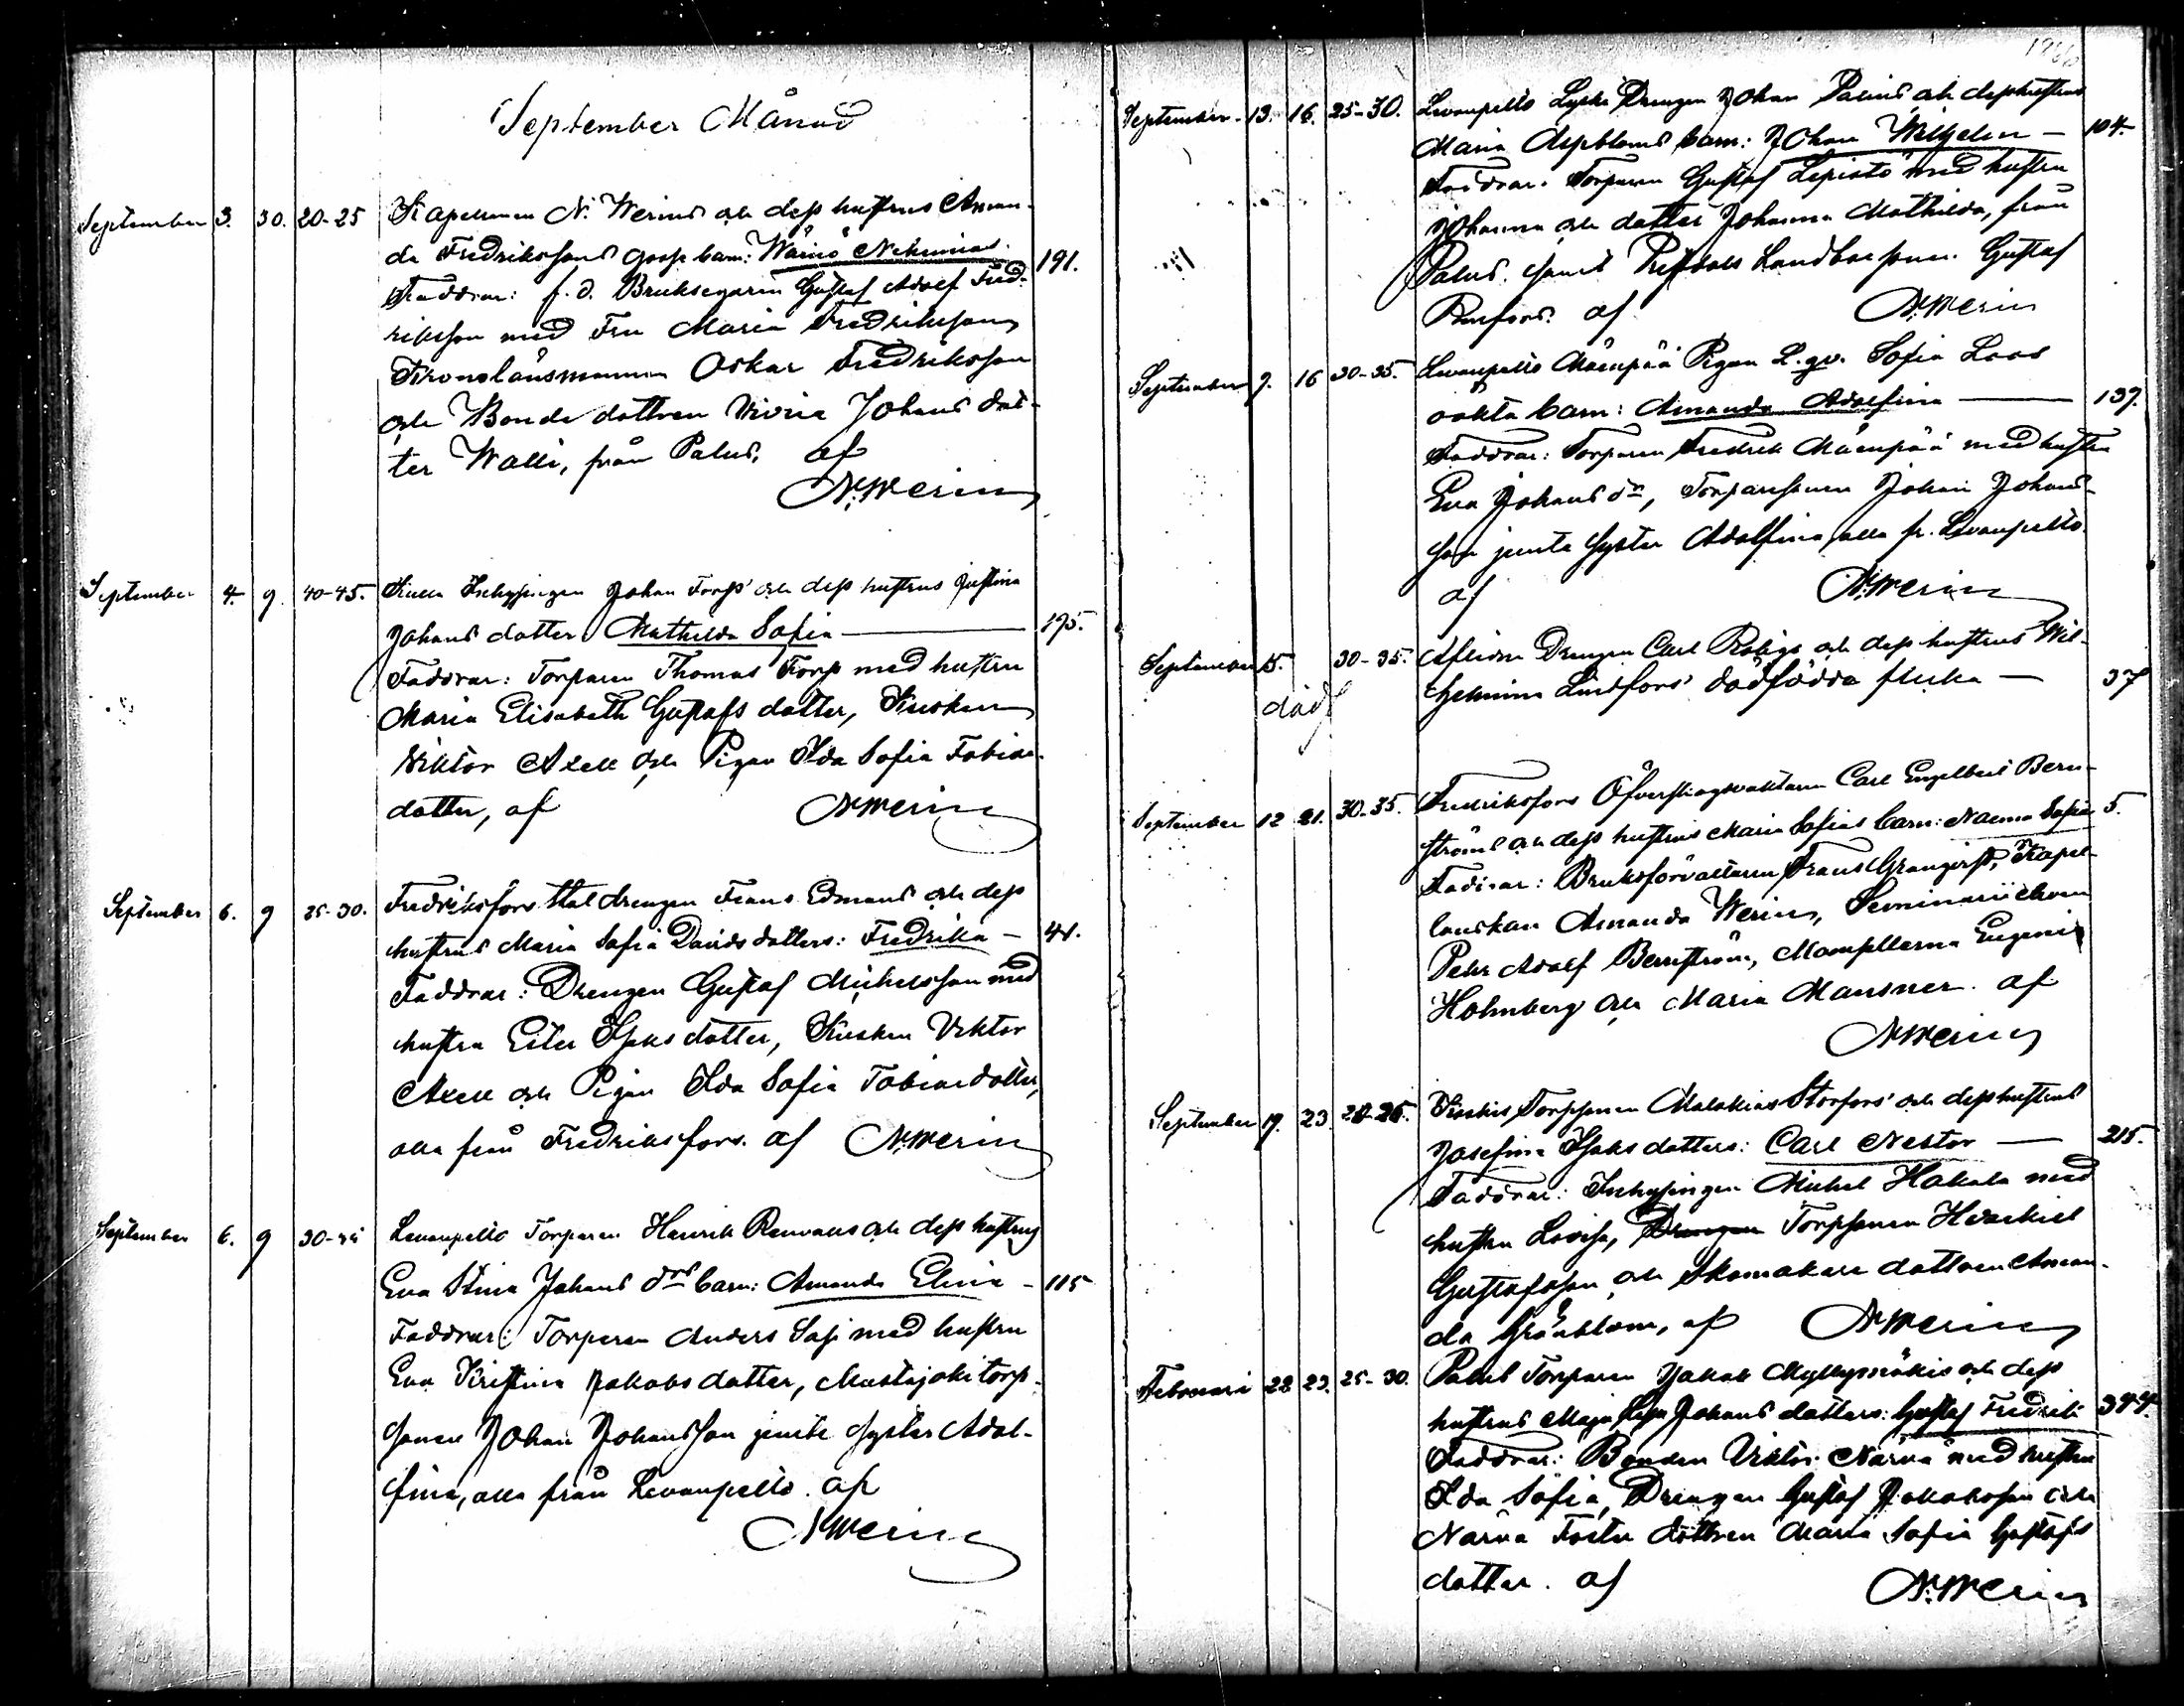 September Månad
September 3. 30. 20-25 Kapellanen N. Werins och dess hustrus Aman-
da Fredrikssons gosse barn: Wäinö Nehemias. 191.
Faddrar: f. d. Bruksegaren Gustaf Adolf Fred-
riksson med Fru Maria Fredriksson,
Kronolänsmannen Oskar Fredriksson
och Bonde dottren Johans dot-
ter Walli, från Palus, af
N. Werin
September 4. 9. 40-45. Inhysingen Johan Torps och dess hustrus Justina
Johans dotter Mathilda Sofia 195.
Faddrar: Torparen Thomas Torp med hustru
Maria Elisabeth Gustafs dotter, Kusken
Viktor Axell och Pigan Ida Sofia Tobias
dotter, af N. Werin
September 6. 9 25-30. Fredriksfors Stal drengen Frans Edmans och dess
hustrus Maria Sofia Davids dotters: Fredrika - 41.
Faddrar: Drengen Gustaf Michelsson med
hustru Ester Isaks dotter, Kusken Viktor
Axell och Pigan Ida Sofia Tobias dotter,
alla från Fredriksfors. af N. Werin
September 6. 9 30-35 Levanpelto Torparen Henrik Renvalls och dess hustrus
Eva Stina Johans drs barn: Amanda Elina - 115
Faddrar: Torparen Anders Sasi med hustru
Eva Kristina Jakobs dotter, Mustajoki torp-
sonen Johan Johansson jemte syster Adol-
fina, alla från Levanpelto. af
N. Werin
1866
September 13. 16. 25-30. Levanpelto Drengen Johan Palins och dess hustrus
Maria Aspbloms barn: Johan Wilhelm - 104.
Faddrar: Torparen Gustaf Lepistö med hustru
Johanna och dotter Johanna Mathilda, från
Palus, samt Landbosonen Gustaf
af N. Werin
September 9. 16 30-35. Levanpelto Mäenpää Pigan L. qv. Sofia Laos
oäkta barn: Amanda Adolfina 137.
Faddrar: Torparen Fredrik Mäenpää med hustru
Eva Johans dr, Torparesonen Johan Johans-
son jemte syster Adolfina, alla fr. Levanpelto.
af N. Werin
September 15. 30-35. Aflidne Drengen Carl och dess hustrus Wil-
helmina Lindfors' dödfödda flicka - 37
död
September 12 21. 30-35. Fredriksfors Öfverskogsvaktaren Carl Engelbert Bern-
ströms och dess hustrus Maria Sofias barn: Naema Sofia 5.
Faddrar: Bruksförvaltaren Frans Granqvist, Kapel-
lanskan Amanda Werin, Seminarii eleven
Pehr Adolf Bernström, Mamsellerna Eugenie
Holmberg och Maria Mansner. af
N. Werin
September 19. 23. 20-25. Torpsonen Malakias Storfors' och dess hustrus
Josefina Isaks dotters: Carl Nestor 215.
Faddrar: Inhysingen Michel Hakala med
hustru Lovisa, Drengen Torpsonen Heskiel
Gustafsson och Skomakare dottren Aman-
da Grönblom, af N. Werin
Februari 22 23. 25-30. Palus Torparen Jakob Myllymäkis och dess
hustrus Maja Johans dotters: Gustaf Fredrik 344.
Faddrar: Bonden Viktor Närvä med hustru
Ida Sofia, Drengen Gustaf Jakobsson och
Närvä Foster dottren Maria Sofia Gustafs
dotter. af N. Werin